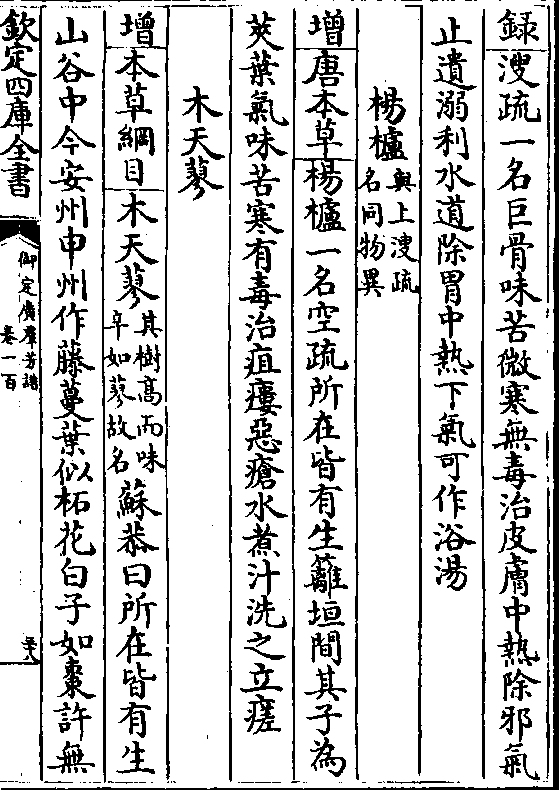 録溲疏一名巨骨味苦微寒無毒治皮膚中熱除邪氣
止遺溺利水道除胃中熱下氣可作浴湯
楊櫨與上溲疏名同物異
増唐本草楊櫨一名空疏所在皆有生籬垣間其子為
莢葉氣味苦寒有毒治疽瘻惡瘡水煮汁洗之立瘥
木天蓼
増本草綱目木天蓼其樹高而味辛如蓼故名蘇恭曰所在皆有生
山谷中今安州申州作藤蔓葉似柘花白子如棗許無
欽定四庫全書
御定廣羣芳譜
卷一百